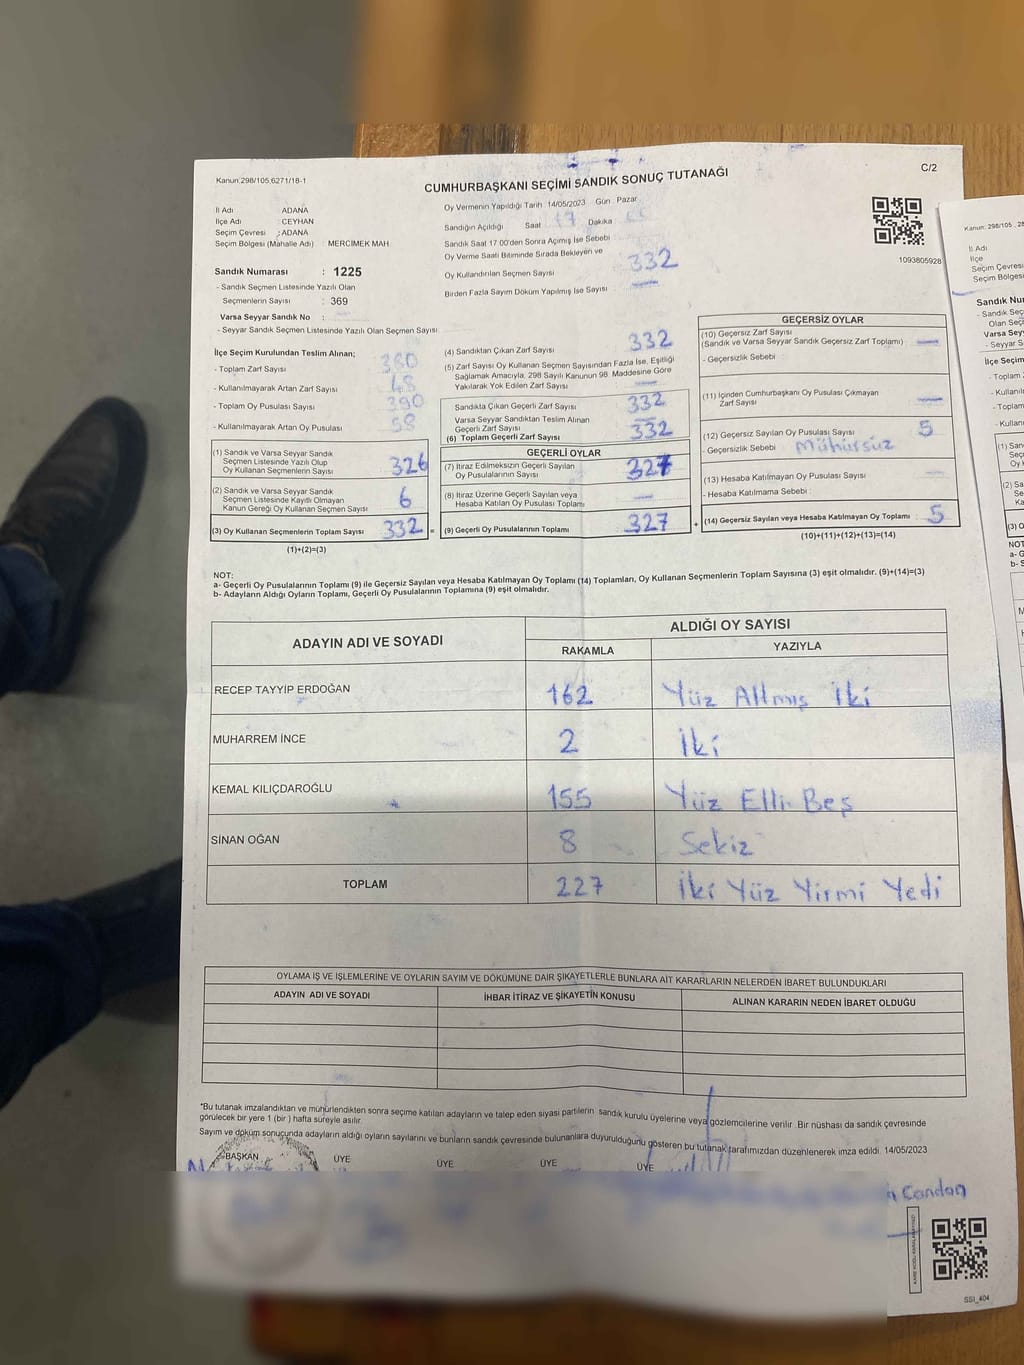 Kanun:298/105,6271/18-1
C/2
CUMHURBAŞKANI SEÇİMİ SANDIK SONUÇ TUTANAĞI
İl Adı : ADANA
İlçe Adı : CEYHAN
Seçim Çevresi : ADANA
Seçim Bölgesi (Mahalle Adı) : MERCİMEK MAH.
Sandık Numarası : 1225
- Sandık Seçmen Listesinde Yazılı Olan
Seçmenlerin Sayısı : 369
Varsa Seyyar Sandık No :
- Seyyar Sandık Seçmen Listesinde Yazılı Olan Seçmen Sayısı
Oy Vermenin Yapıldığı Tarih :14/05/2023 Gün : Pazar
Sandığın Açıldığı Saat 17 Dakika
Sandık Saat 17:00'den Sonra Açımış İse Sebebi
Oy Verme Saati Bitiminde Sırada Bekleyen ve
Oy Kullandırılan Seçmen Sayısı 332
Birden Fazla Sayım Döküm Yapılmış İse Sayısı
1093805928
İlçe Seçim Kurulundan Teslim Alınan;
- Toplam Zarf Sayısı 380
- Kullanılmayarak Artan Zarf Sayısı 48
- Toplam Oy Pusulası Sayısı 390
- Kullanılmayarak Artan Oy Pusulası 58
(1) Sandık ve Varsa Seyyar Sandık
Seçmen Listesinde Yazılı Olup
Oy Kullanan Seçmenlerin Sayısı 326
(2) Sandık ve Varsa Seyyar Sandık
Seçmen Listesinde Kayıtlı Olmayan
Kanun Gereği Oy Kullanan Seçmen Sayısı 6
(3) Oy Kullanan Seçmenlerin Toplam Sayısı 332 =
(1)+(2)=(3)
(4) Sandıktan Çıkan Zarf Sayısı 332
(5) Zarf Sayısı Oy Kullanan Seçmen Sayısından Fazla İse, Eşitliği
Sağlamak Amacıyla, 298 Sayılı Kanunun 98. Maddesine Göre
Yakılarak Yok Edilen Zarf Sayısı
Sandıkta Çıkan Geçerli Zarf Sayısı 332
Varsa Seyyar Sandıktan Teslim Alınan
Geçerli Zarf Sayısı
(6) Toplam Geçerli Zarf Sayısı 332
GEÇERLİ OYLAR
(7) İtiraz Edilmeksizin Geçerli Sayılan
Oy Pusulalarının Sayısı 327
(8) İtiraz Üzerine Geçerli Sayılan veya
Hesaba Katılan Oy Pusulası Sayısı
(9) Geçerli Oy Pusulalarının Toplamı 327 +
GEÇERSİZ OYLAR
(10) Geçersiz Zarf Sayısı
(Sandık ve Varsa Seyyar Sandık Geçersiz Zarf Toplamı)
- Geçersizlik Sebebi :
(11) İçinden Cumhurbaşkanı Oy Pusulası Çıkmayan
Zarf Sayısı
(12) Geçersiz Sayılan Oy Pusulası Sayısı 5
- Geçersizlik Sebebi : Mühürsüz
(13) Hesaba Katılmayan Oy Pusulası Sayısı
- Hesaba Katılmama Sebebi :
(14) Geçersiz Sayılan veya Hesaba Katılmayan Oy Toplamı : 5
(10)+(11)+(12)+(13)=(14)
NOT:
a- Geçerli Oy Pusulalarının Toplamı (9) ile Geçersiz Sayılan veya Hesaba Katılmayan Oy Toplamı (14) Toplamları, Oy Kullanan Seçmenlerin Toplam Sayısına (3) eşit olmalıdır. (9)+(14)=(3)
b- Adayların Aldığı Oyların Toplamı, Geçerli Oy Pusulalarının Toplamına (9) eşit olmalıdır.
ADAYIN ADI VE SOYADI
ALDIĞI OY SAYISI
RAKAMLA YAZIYLA
RECEP TAYYİP ERDOĞAN 162 Yüz Altmış İki
MUHARREM İNCE 2 İki
KEMAL KILIÇDAROĞLU 155 Yüz Elli Beş
SİNAN OĞAN 8 Sekiz
TOPLAM 227 İki Yüz Yirmi Yedi
OYLAMA İŞ VE İŞLEMLERİNE VE OYLARIN SAYIM VE DÖKÜMÜNE DAİR ŞİKAYETLERLE BUNLARA AİT KARARLARIN NELERDEN İBARET BULUNDUKLARI
ADAYIN ADI VE SOYADI İHBAR İTİRAZ VE ŞİKAYETİN KONUSU ALINAN KARARIN NEDEN İBARET OLDUĞU
*Bu tutanak imzalandıktan ve mühürlendikten sonra seçime katılan adayların ve talep eden siyasi partilerin sandık kurulu üyelerine veya gözlemcilerine verilir. Bir nüshası da sandık çevresinde
görülecek bir yere 1 (bir) hafta süreyle asılır.
Sayım ve döküm sonucunda adayların aldığı oyların sayılarını ve bunların sandık çevresinde bulunanlara duyurulduğunu gösteren bu tutanak tarafımızdan düzenlenerek imza edildi. 14/05/2023
BAŞKAN ÜYE ÜYE ÜYE ÜYE
Candan
SSI_404
Kanun: 298/105
İl Adı
İlçe
Seçim Çevresi
Seçim Bölgesi